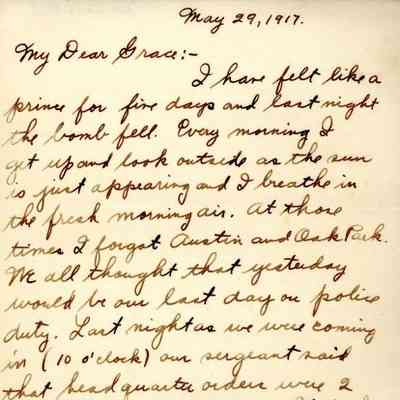 May 29, 1917.
My Dear Grace:-
I have felt like a
prince for five days and last night
the bomb fell. Every morning I
get up and look outside as the sun
is just appearing and I breathe in
the fresh morning air. At those
times I forgot Austin and Oak Park.
We all thought that yesterday
would be our last day on police
duty. Last night as we were coming
in (10 o'clock) our sergeant said
that headquarter orders were 2